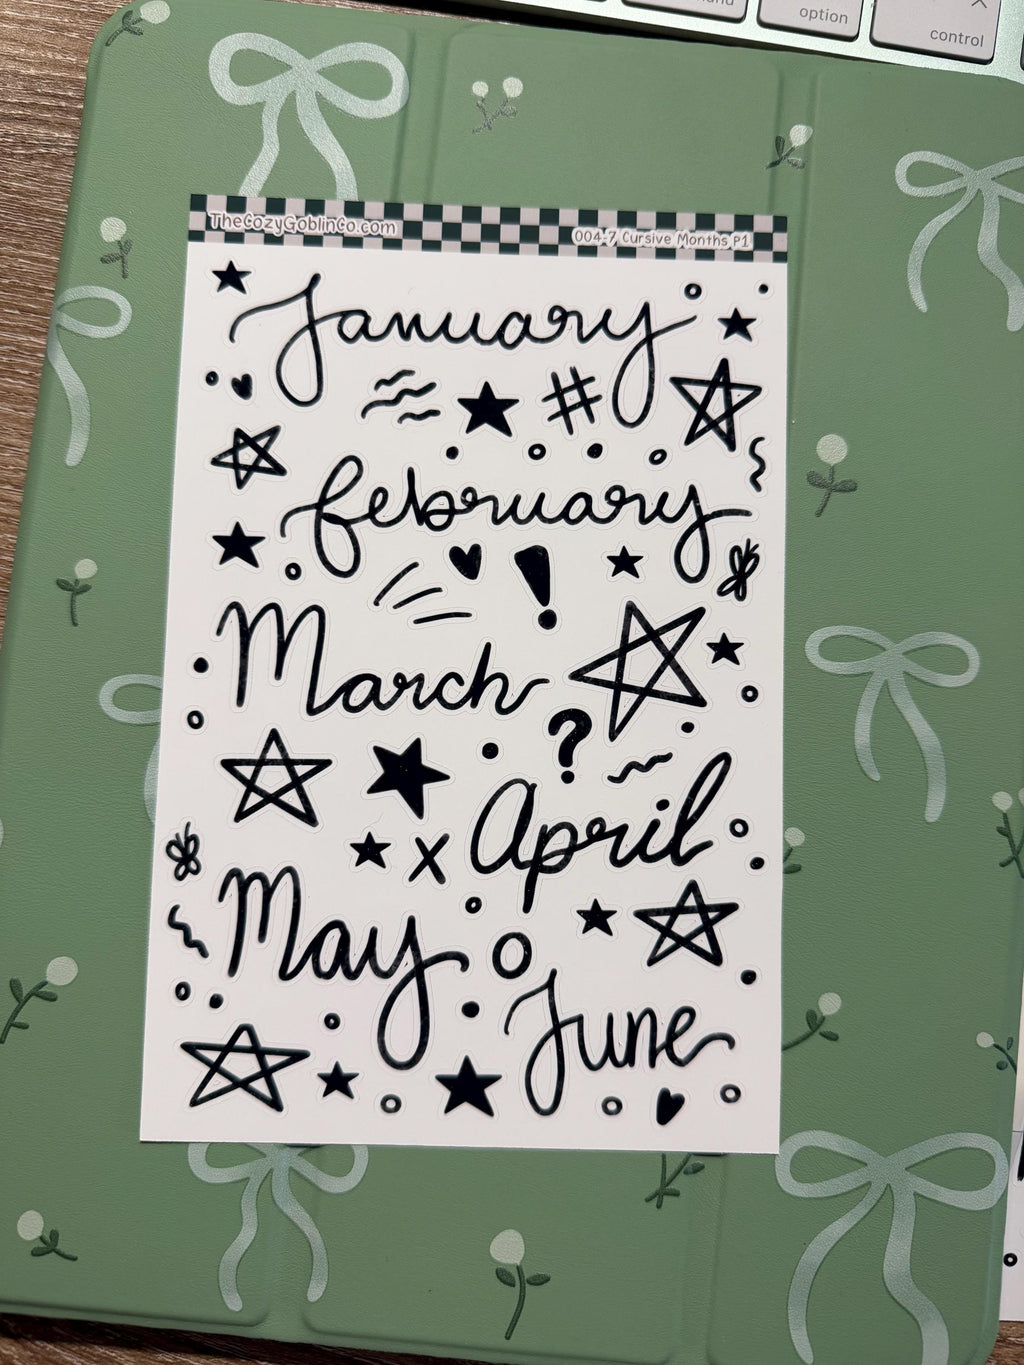 option
control
TheCozyGoblinCo.com
004-7 Cursive Months P1
January
#
february
!
March
?
April
x
May
June